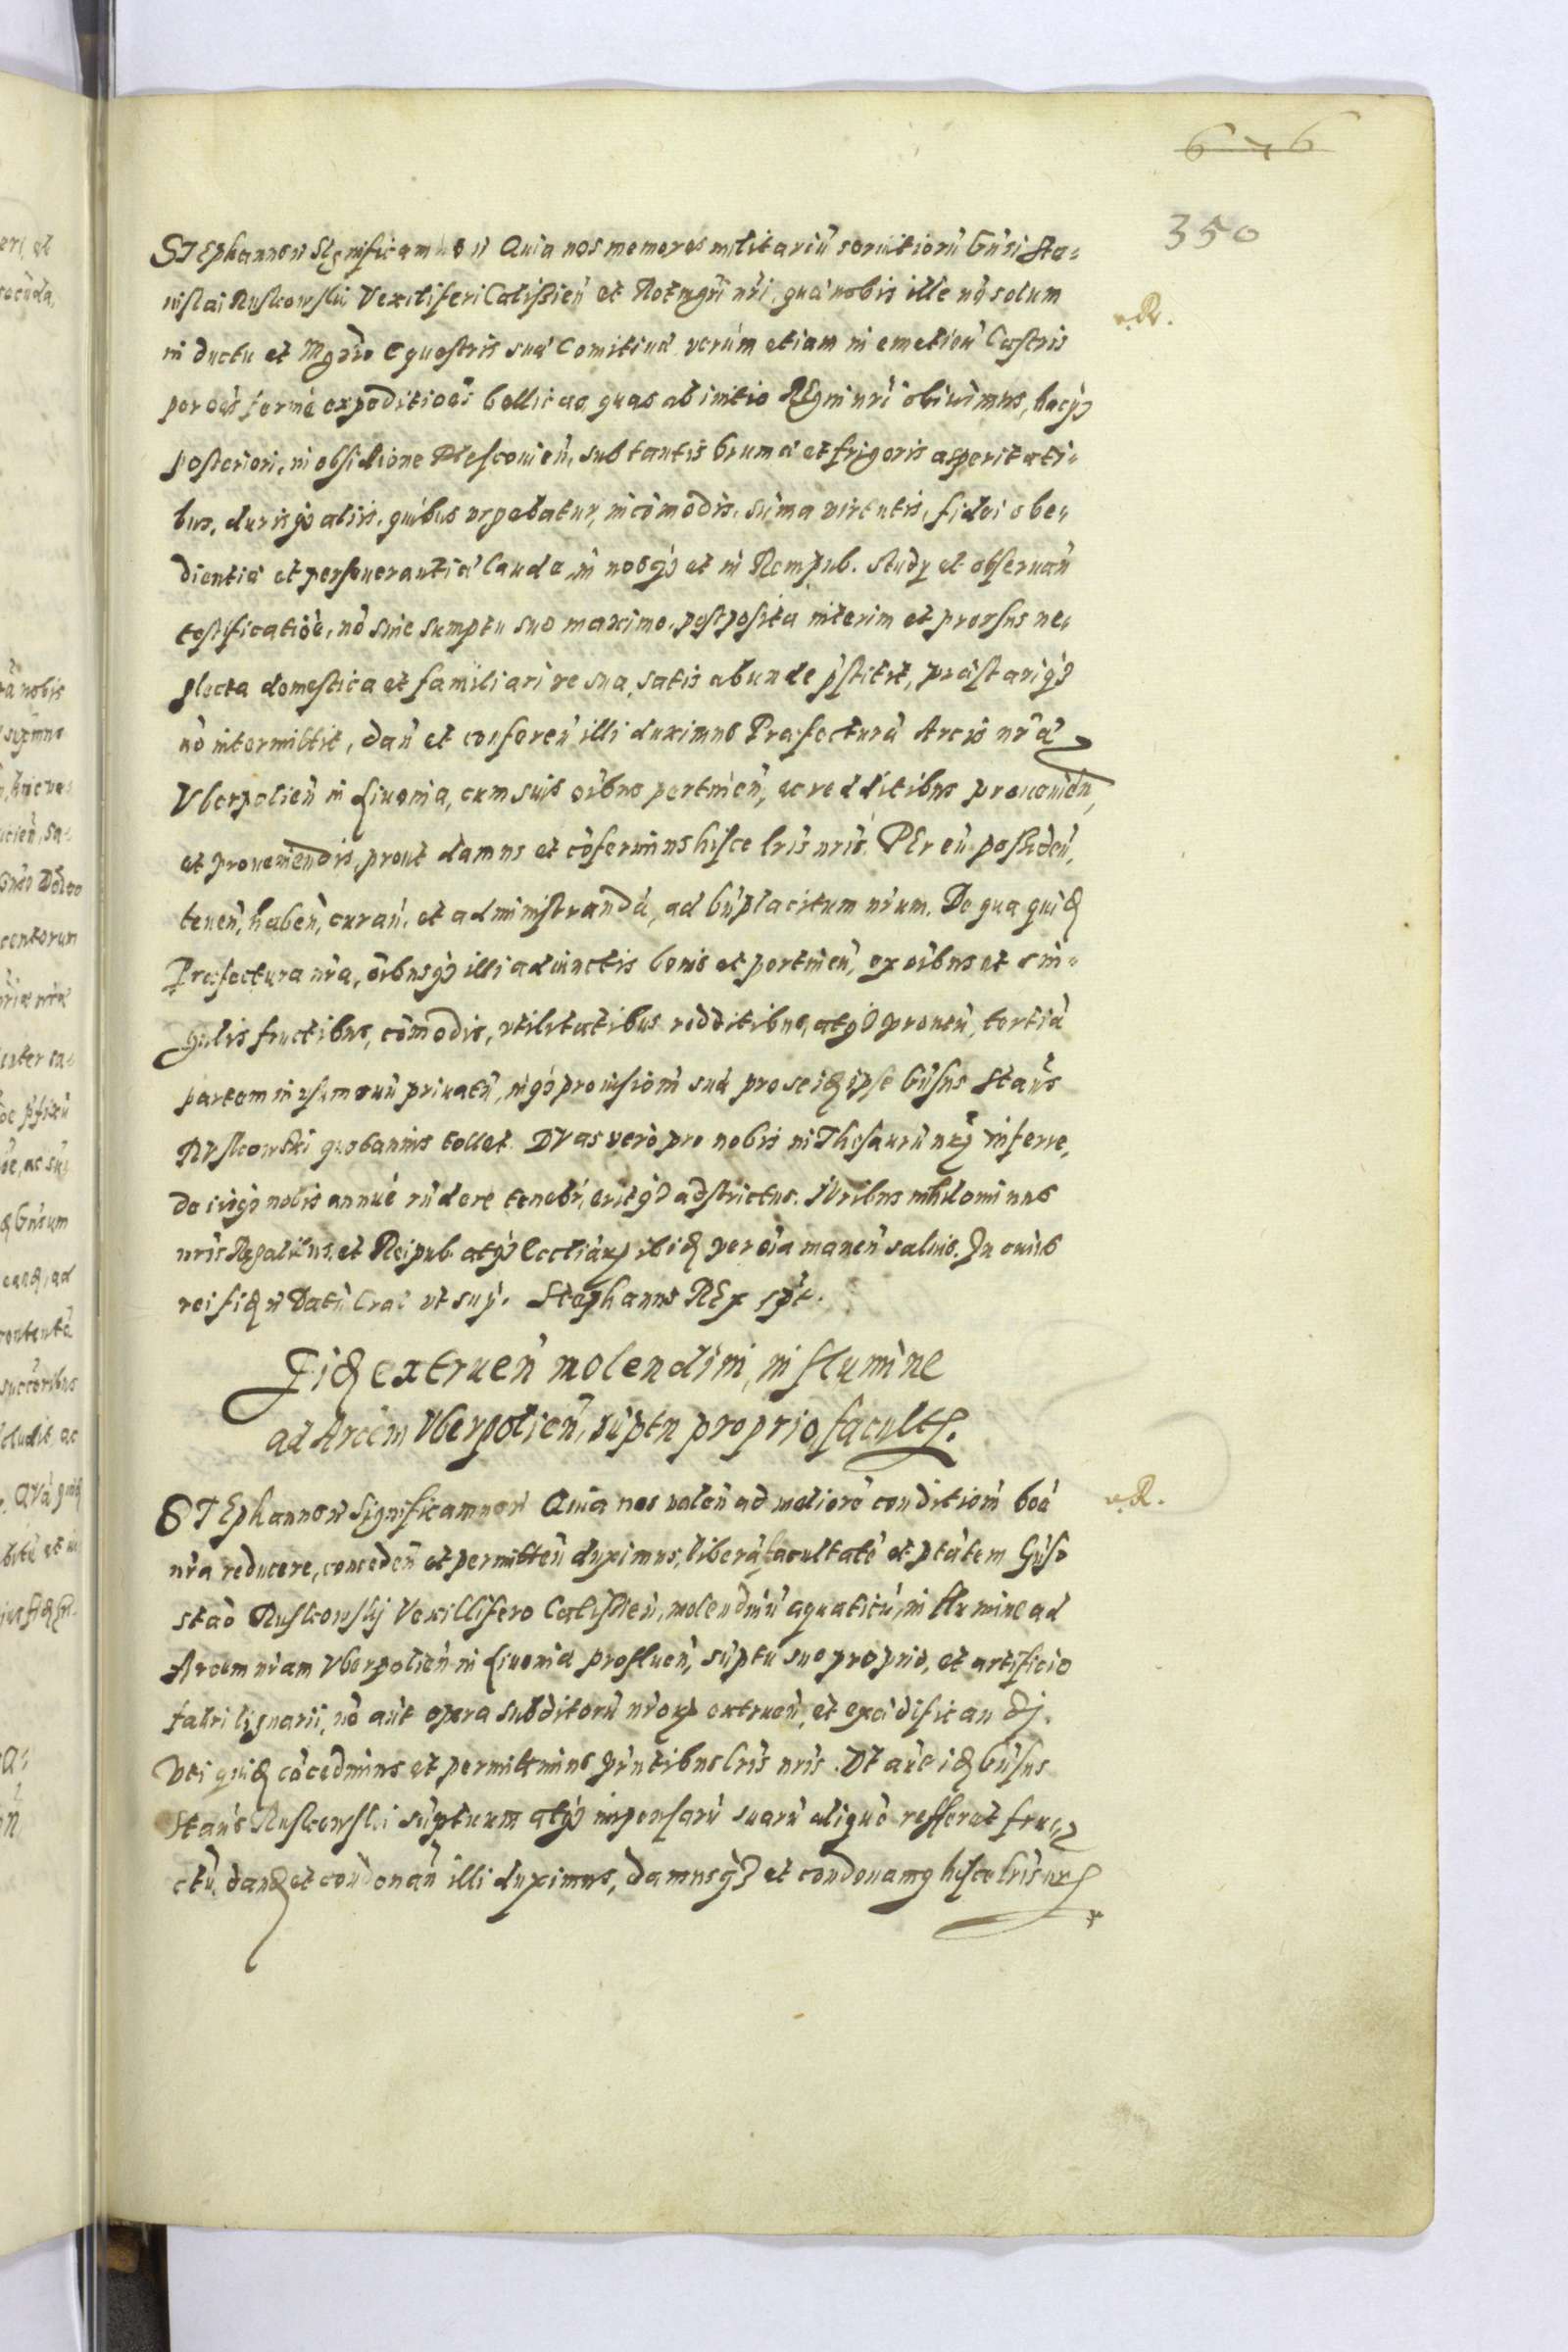 676
350
STEphannus Significamus Quia nos memores militariũ seruitiorũ Gn̄si Sta⸗
nislai Ruskowski Vexiliferi Calißień et Rotmgr̄i nr̄i, quã nobis ille nõ solum
in ductu et Mgrãio Equestris suã Comitiuã verùm etiam in emetień Castris
per oẽs fermè expeditioẽs bellicas, quas ab initio Regni nr̄i obiuimus, hacq3
posteriori, in obsidione Plescouień, sub tantis bruma et frigoris asperitati⸗
bus, durisq3 aliis, quibus vrgebatur, incõmodis, sũma virtutis, fidei obe⸗
dientiæ et perseuerantiæ laude, in nosq3 et in Rempub. studij et obseruań
testificatiõe, nõ sine sumptu suo maximo, postposita interim et prorsus ne⸗
glecta domestica et familiari re sua, satis abunde p̃stitit, præstariq3
nõ intermittit, dań et confereń illi duximus Præfecturã Arcis nr̄æ
Vberpolień in Liuonia, cum suis oĩbus pertineń, ac redditibus proueniēn,
et proueniendis, prout damus et cõferimus hisce lr̄is nr̄is. PEr eũ possideń,
teneń, habeń, curań, et administrandã, ad bn̄placitum nr̄um. De qua quid
Præfectura nr̄a, oĩbusq3 illi adiunctis bonis et pertineń, ex oĩbus et sin⸗
gulis fructibus, cõmodis, vtilitatibus redditibus, atq3 prouen, tertiã
partem in vsum suũ priuatũ, inq3 prouisionẽ suã pro se id ipse Gn̄sus Stan̄s
RVskowski quotannis tollet. DVas verò pro nobis in Thesaurũ nr̄m inferre,
de iisq3 nobis annuè rõ̃dere tenebr, eritq3 adstrictus. IVribus nihilominus
nr̄is Regalibus, et Reipub. atq3 Eccliarum ibid per oĩa maneń saluis. In cuius
rei fid Datũ Crac vt sup. Stephanus REx spt.
Fid extrueń molendini, in flumine
ad Arcem Vberpolień, sũptu proprio, facults.
STEphannus Significamus Quia nos voleń ad meliorẽ conditionẽ boã
nr̄a reducere, concedeń et permitteń duximus, liberã facultatẽ et ptãtem Gn̄so
Stao Ruskowskij Vexillifero Calißień, molendinũ aquaticũ, in flumine ad
Arcem nr̄am Vberpolień in Liuonia proflueń, sũptu suo proprio, et artificio
fabri lignarii, nõ aũt opera subditorũ nr̄orum extrueń, et exædificandj.
Vti quid cõcedimus et permittimus p̃ntibus lr̄is nr̄is. Vt aũt id Gn̄sus
Stan̄s Ruskowski sũptuum atq3 impensarũ suarũ aliquẽ referat fruc⸗
ctũ, dand et condonań illi duximus, damusq3 et condonamus hisce lr̄is nr̄s